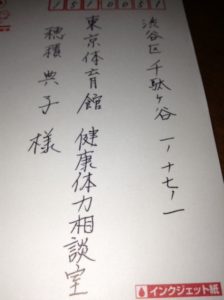 1510051
渋谷区千駄ヶ谷一ノ十七ノ一
東京体育館 健康体力相談室
穂積典子様
インクジェット紙